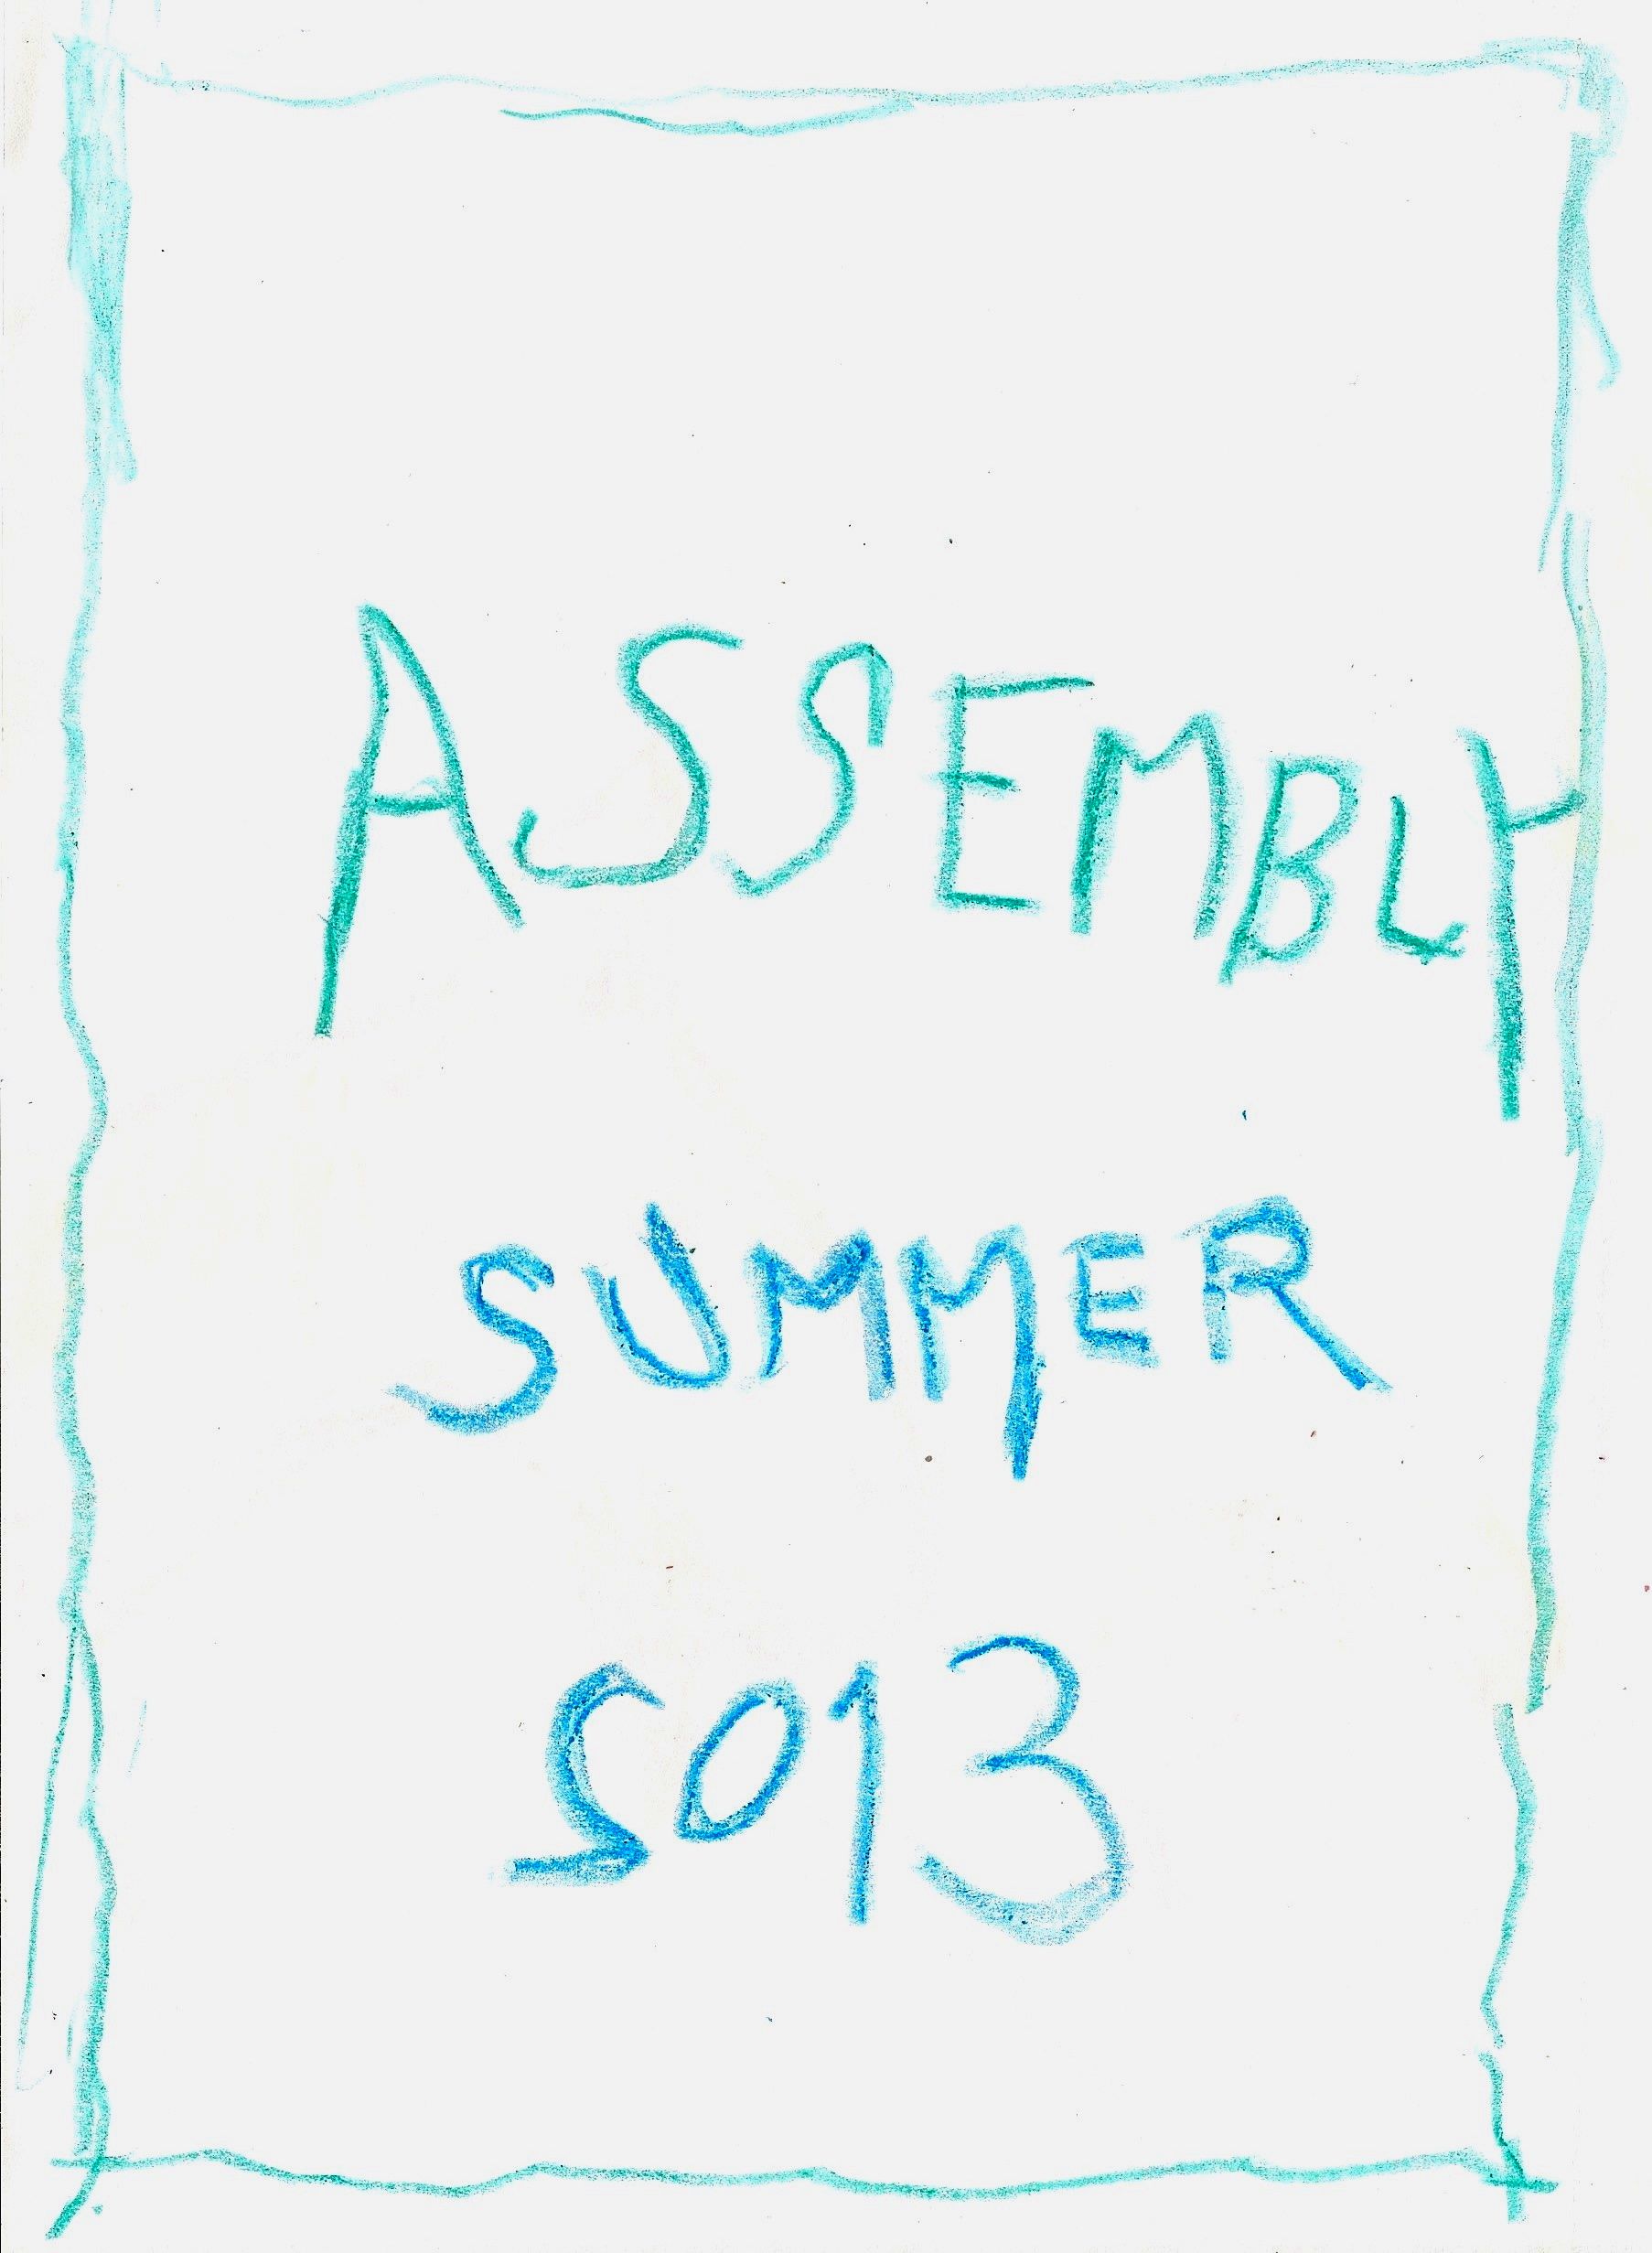 ASSEMBLY
SUMMER
S013